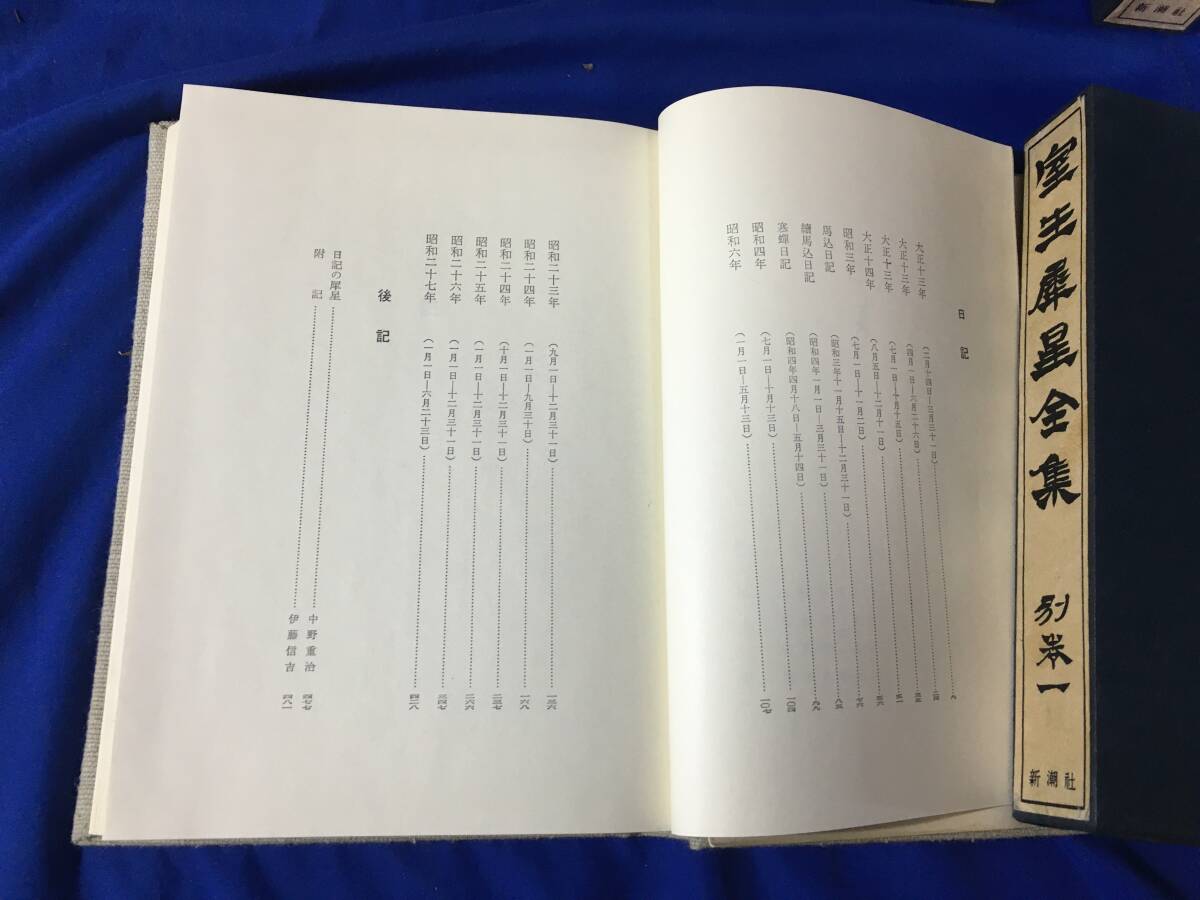 日記
大正十三年 (二月十四日—三月三十一日)……八
大正十三年 (四月一日—六月二十六日)……二四
大正十三年 (七月一日—十月十五日)……三五
大正十四年 (八月五日—十二月十一日)……五一
昭和三年 (七月一日—十一月二日)……
馬込日記 (昭和三年十一月十五日—十二月三十一日)……七六
續馬込日記 (昭和四年一月一日—三月三十一日)……八五
寒蟬日記 (昭和四年四月十八日—五月十四日)……九九
昭和四年 (七月一日—十月十三日)……一〇四
昭和六年 (一月一日—五月十三日)……一〇七
昭和二十三年 (九月一日—十二月三十一日)……一三六
昭和二十四年 (一月一日—九月三十日)……一六八
昭和二十四年 (十月一日—十二月三十一日)……二三七
昭和二十五年 (一月一日—十二月三十一日)……二六六
昭和二十六年 (一月一日—十二月三十一日)……三四七
昭和二十七年 (一月一日—六月二十三日)……四二八
後記
日記の犀星……中野重治 四七七
附記……伊藤信吉 四八一
室生犀星全集 別巻一
新潮社
新潮社